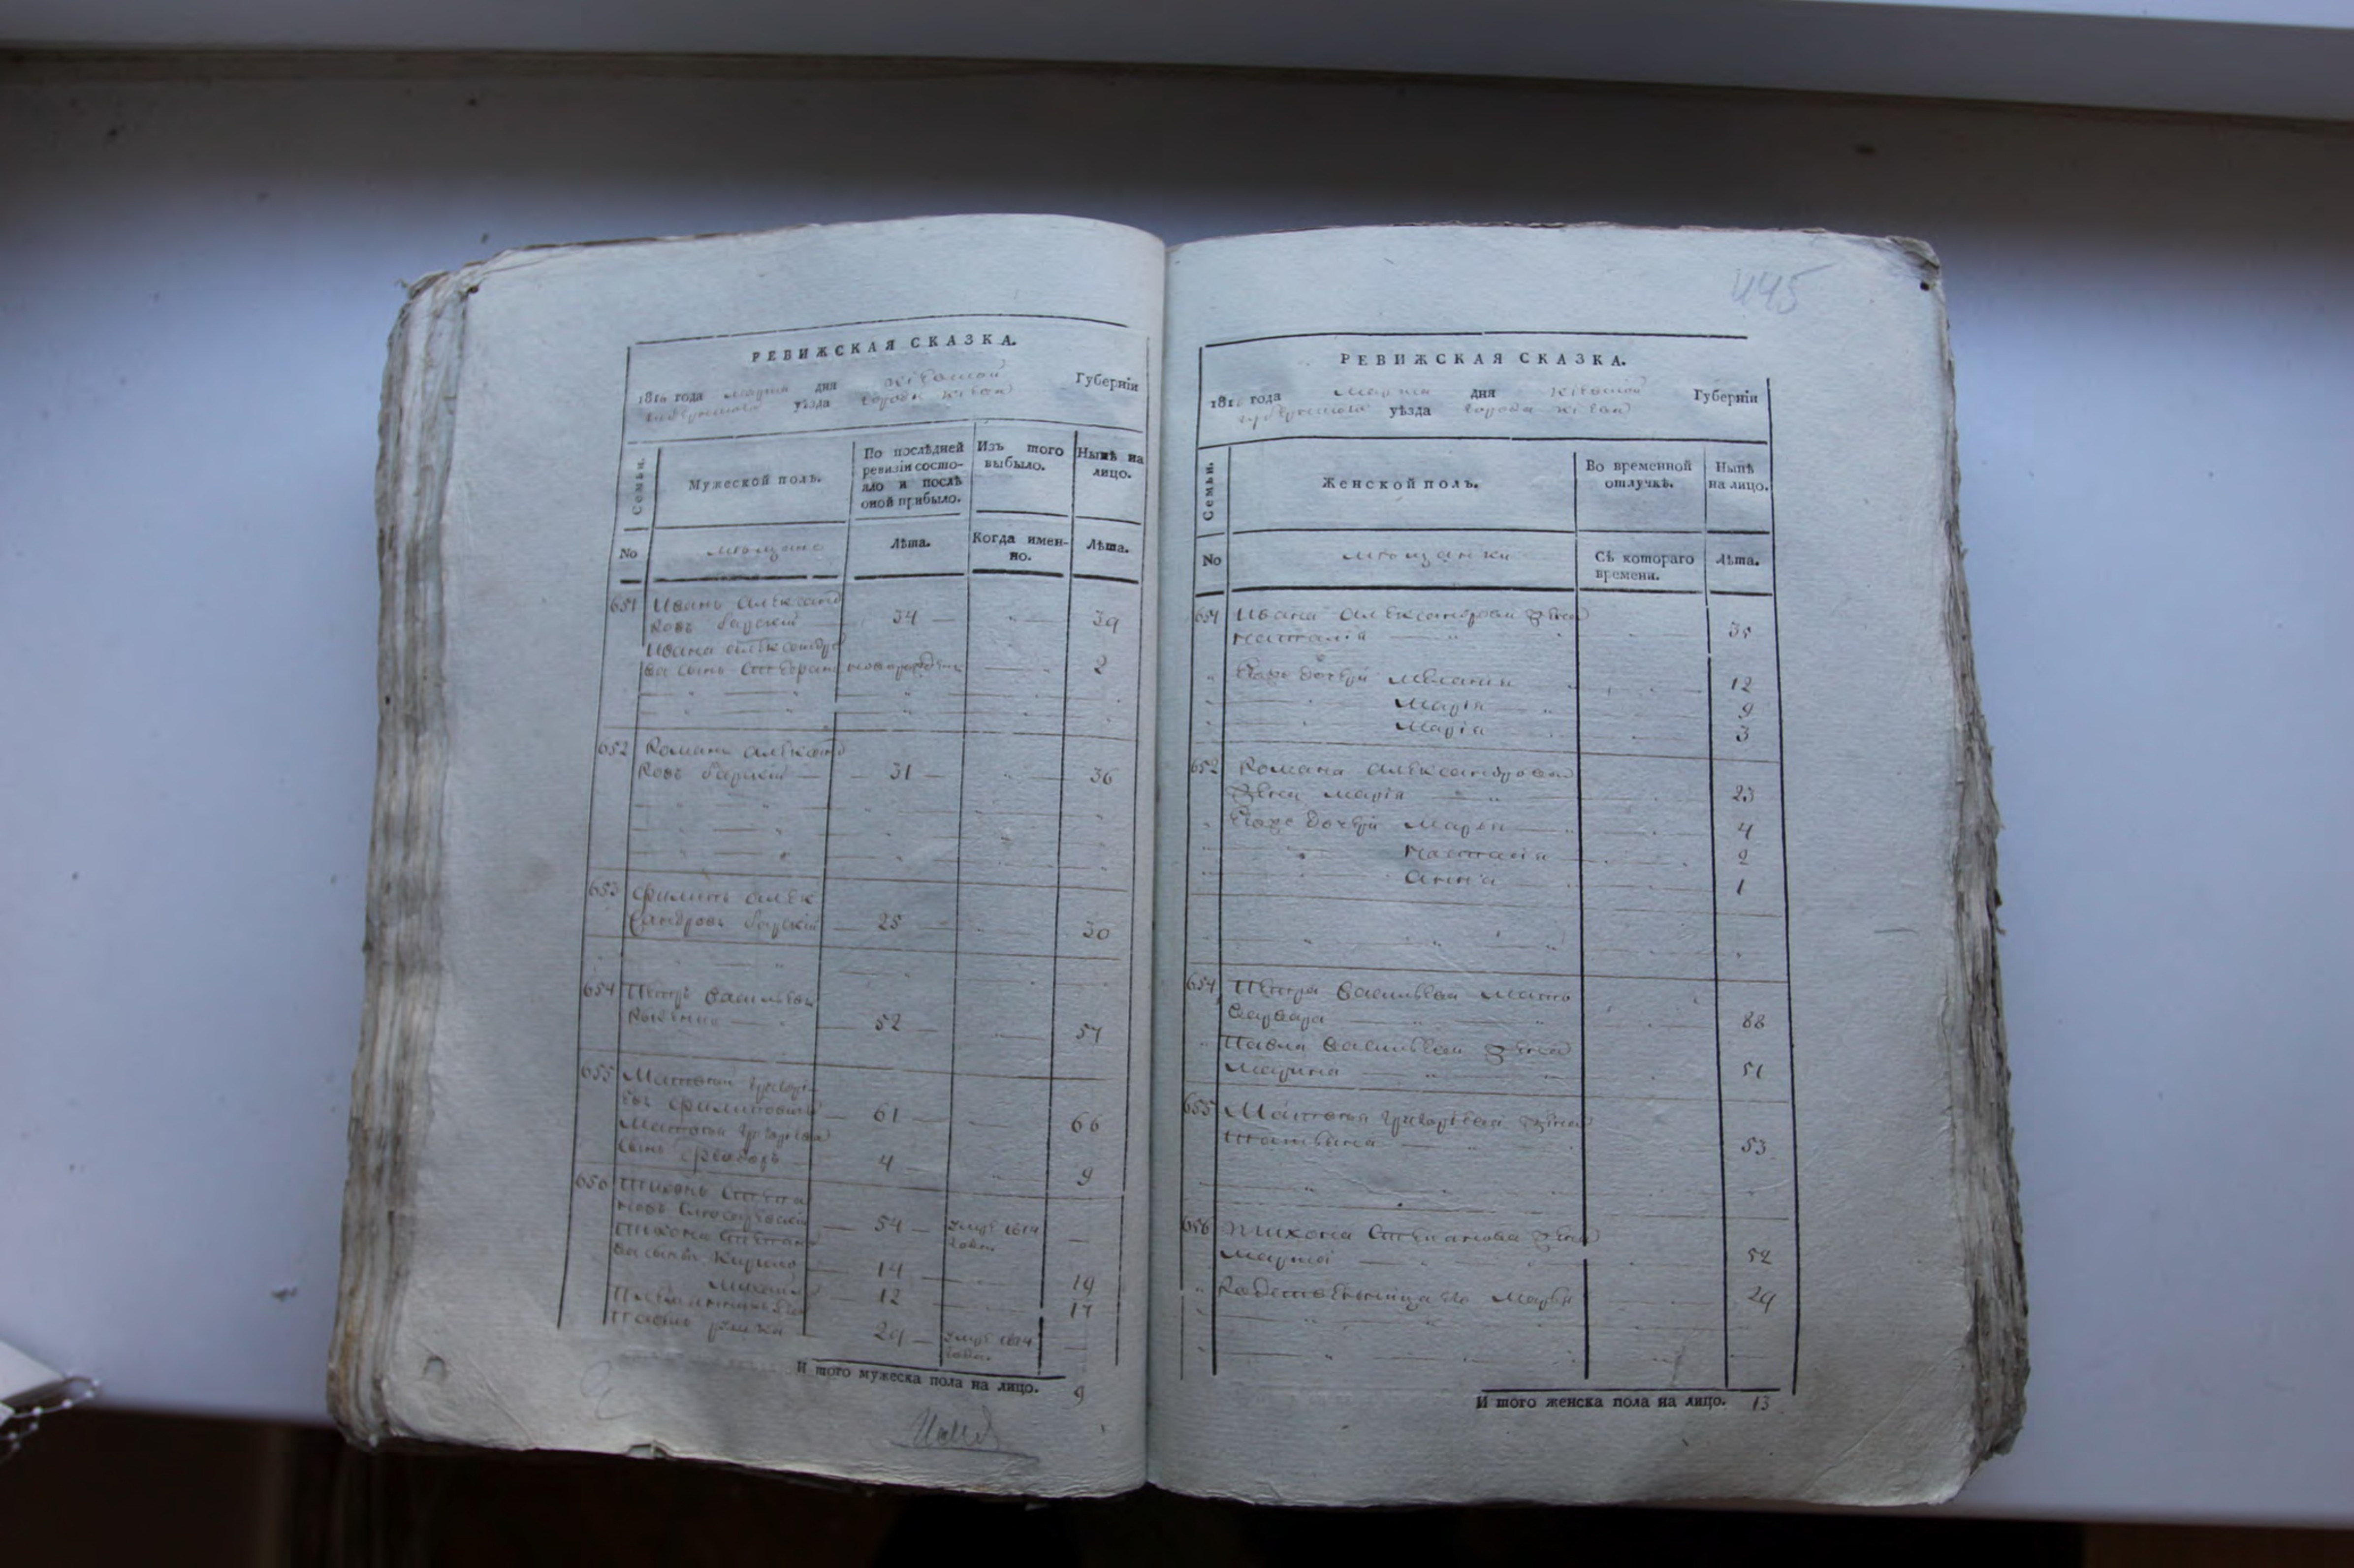 РЕВИЖСКАЯ СКАЗКА.
1816 года марта дня Кіевской Губерніи
губернского уѣзда города Кіева
Семьи.
Мужеской полъ.
По послѣдней ревизіи состояло и послѣ оной прибыло.
Изъ того выбыло.
Нынѣ на лицо.
No
мѣщане
Лѣта.
Когда именно.
Лѣта.
651 Иванъ Александ
ровъ барскій — 34 — 39
Ивана Александро
ва сынъ новорожден 2
652 Романъ Александ
ровъ барскій — 31 — 36
653 Филипъ Алек
сандровъ барскій 25 — 30
654 Петръ Васильевъ
52 — 57
655 Матвей Григорі
евъ 61 — 66
Матвея Григорьева
сынъ Феодоръ — 4 9
656 Тихонъ Степа
новъ — 54 — умре 1814
года. —
Тихона Степано
ва сынъ Кирило 14 19
Михайло 12 17
29 — умре 1814
года. —
И того мужеска пола на лицо. 9
445
РЕВИЖСКАЯ СКАЗКА.
1816 года марта дня Кіевской Губерніи
губернского уѣзда города Кіева
Семьи.
Женской полъ.
Во временной отлучкѣ.
Нынѣ на лицо.
No
мѣщанки
Съ котораго времени.
Лѣта.
651 Ивана Александрова жена
Наталія 35
Егоже дочери Меланія 12
Марія 9
Марія 3
652 Романа Александрова
жена Марія 23
Егоже дочери Марья 4
Наталія 2
Анна 1
654 Петра Васильева мать
Варвара 88
Павла Васильева жена
Марина 51
655 Матвея Григорьева жена
Татьяна 53
656 Тихона Степанова жена
Марфа 52
Родственница его Марья 29
И того женска пола на лицо. 13